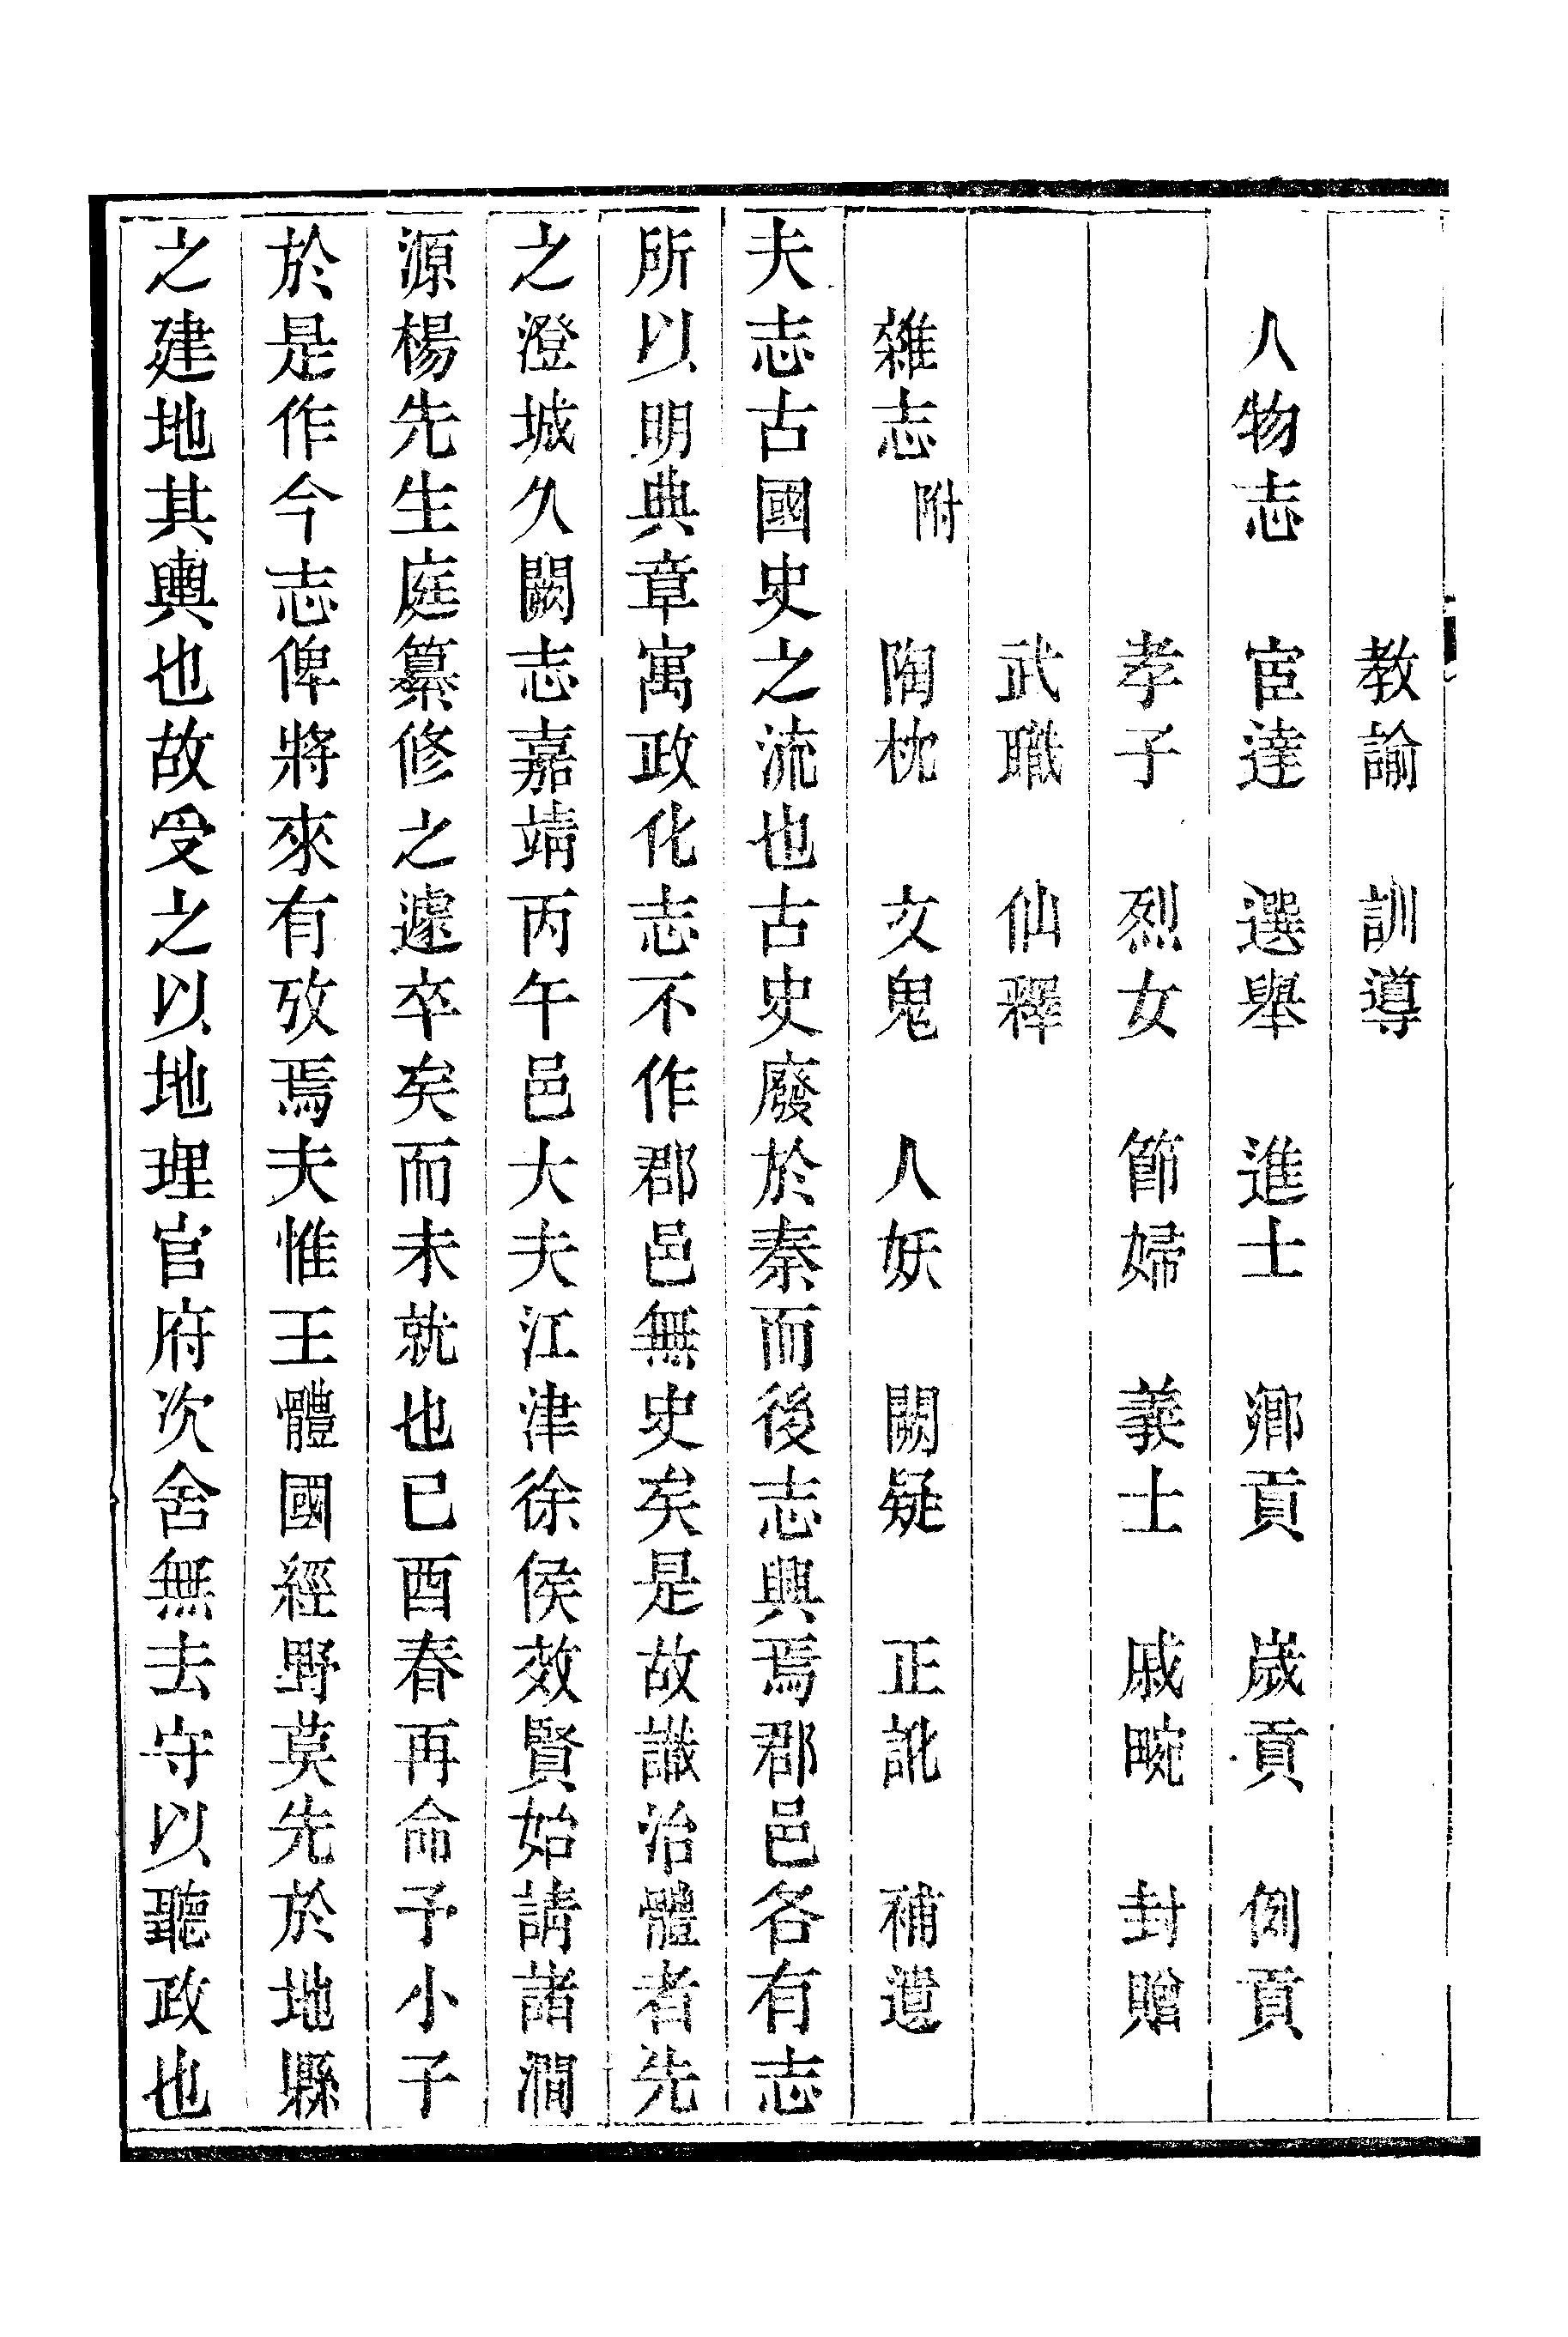 教諭　訓導
人物志　宦達　選舉　進士　鄉貢　歲貢　例貢
孝子　烈女　節婦　義士　戚畹　封贈
武職　仙釋
雜志附　陶枕　文鬼　人妖　闕疑　正訛　補遺
夫志古國史之流也古史廢於秦而後志興焉郡邑各有志
所以明典章寓政化志不作郡邑無史矣是故識治體者先
之澄城久闕志嘉靖丙午邑大夫江津徐侯效賢始請諸澗
源楊先生庭纂修之遽卒矣而未就也已酉春再命予小子
於是作今志俾將來有攷焉夫惟王體國經野莫先於地縣
之建地其輿也故受之以地理官府次舍無去守以聽政也